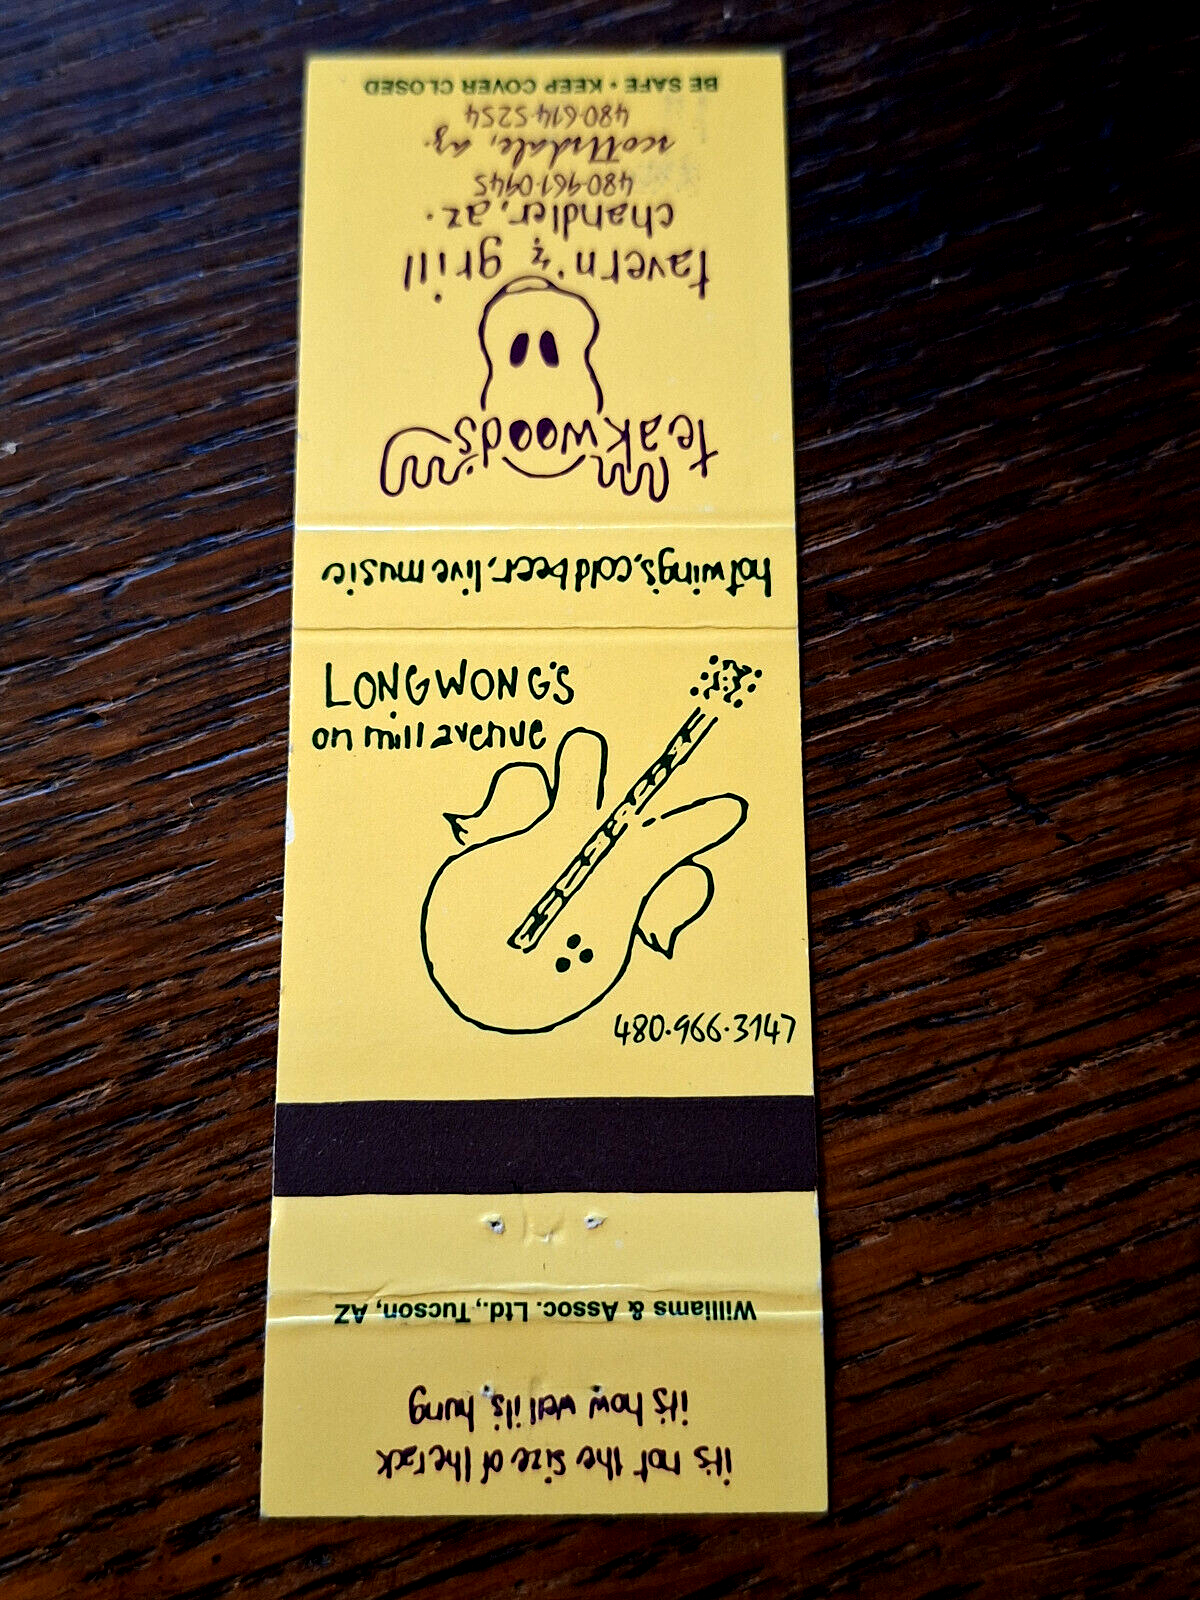 BE SAFE • KEEP COVER CLOSED
480·614·5254
scottsdale, az.
480·961·0945
chandler, az.
tavern & grill
teakwoods
hot wings, cold beer, live music
LONGWONG'S
on mill avenue
480·966·3147
Williams & Assoc. Ltd., Tucson, AZ
it's not the size of the rack
it's how well it's hung